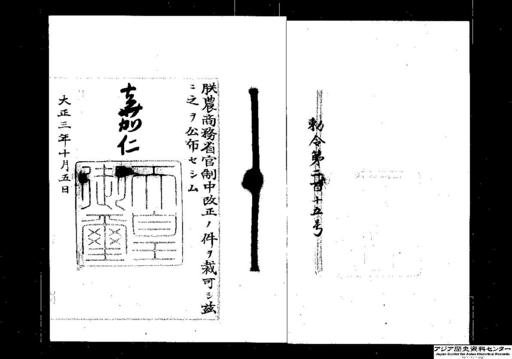 勅令第二百十五号
朕農商務省官制中改正ノ件ヲ裁可シ茲
ニ之ヲ公布セシム
嘉仁
天皇
御璽
大正三年十月五日
アジア歴史資料センター
Japan Center for Asian Historical Records